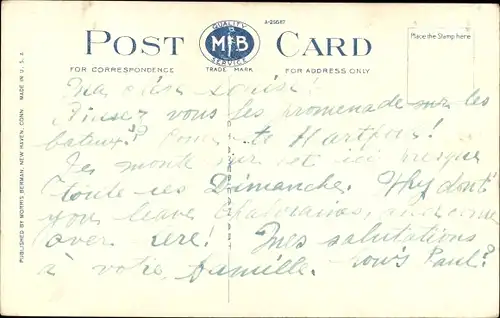 A-25687
QUALITY
POST MB CARD
SERVICE
Place the Stamp here
FOR CORRESPONDENCE TRADE MARK FOR ADDRESS ONLY
PUBLISHED BY MORRIS BERMAN, NEW HAVEN, CONN. MADE IN U. S. A.
Ma chère Louise!
Aimez vous les promenade sur les
bateaux? Come to Hartford!
Je monte sur et ici presque
toute les Dimanche. Why don't
you leave and come
over here! Mes salutations
à votre famille. Paul?